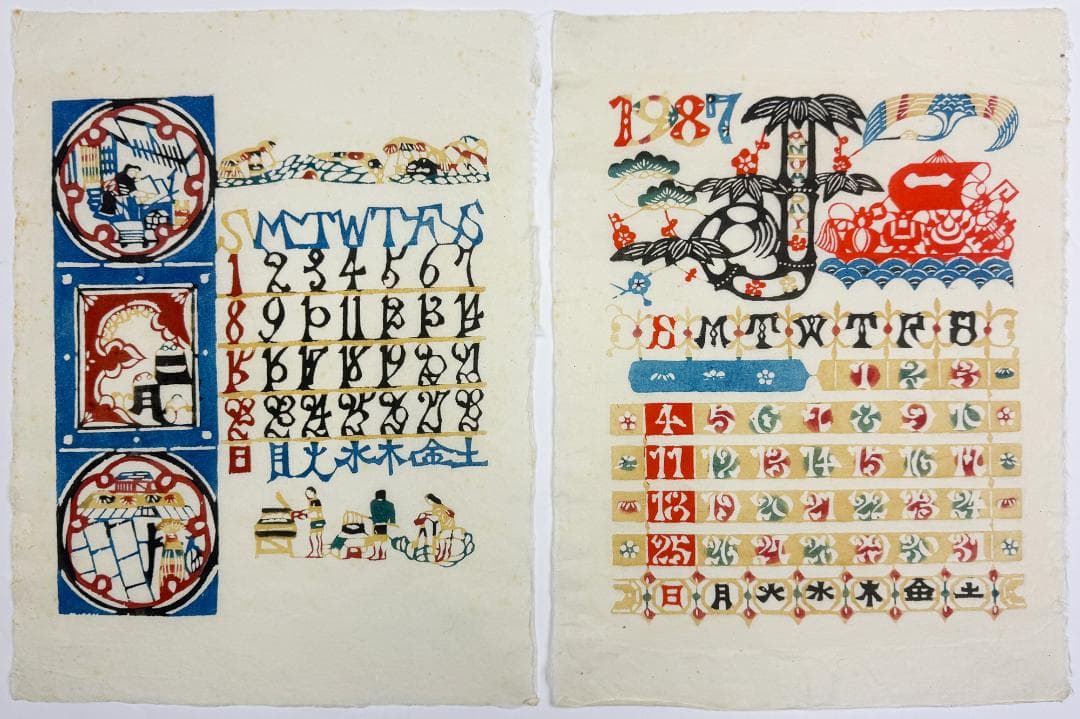 二月
S M T W T F S
1 2 3 4 5 6 7
8 9 10 11 12 13 14
15 16 17 18 19 20 21
22 23 24 25 26 27 28
日 月 火 水 木 金 土
1987
JANUARY
S M T W T F S
1 2 3
4 5 6 7 8 9 10
11 12 13 14 15 16 17
18 19 20 21 22 23 24
25 26 27 28 29 30 31
日 月 火 水 木 金 土